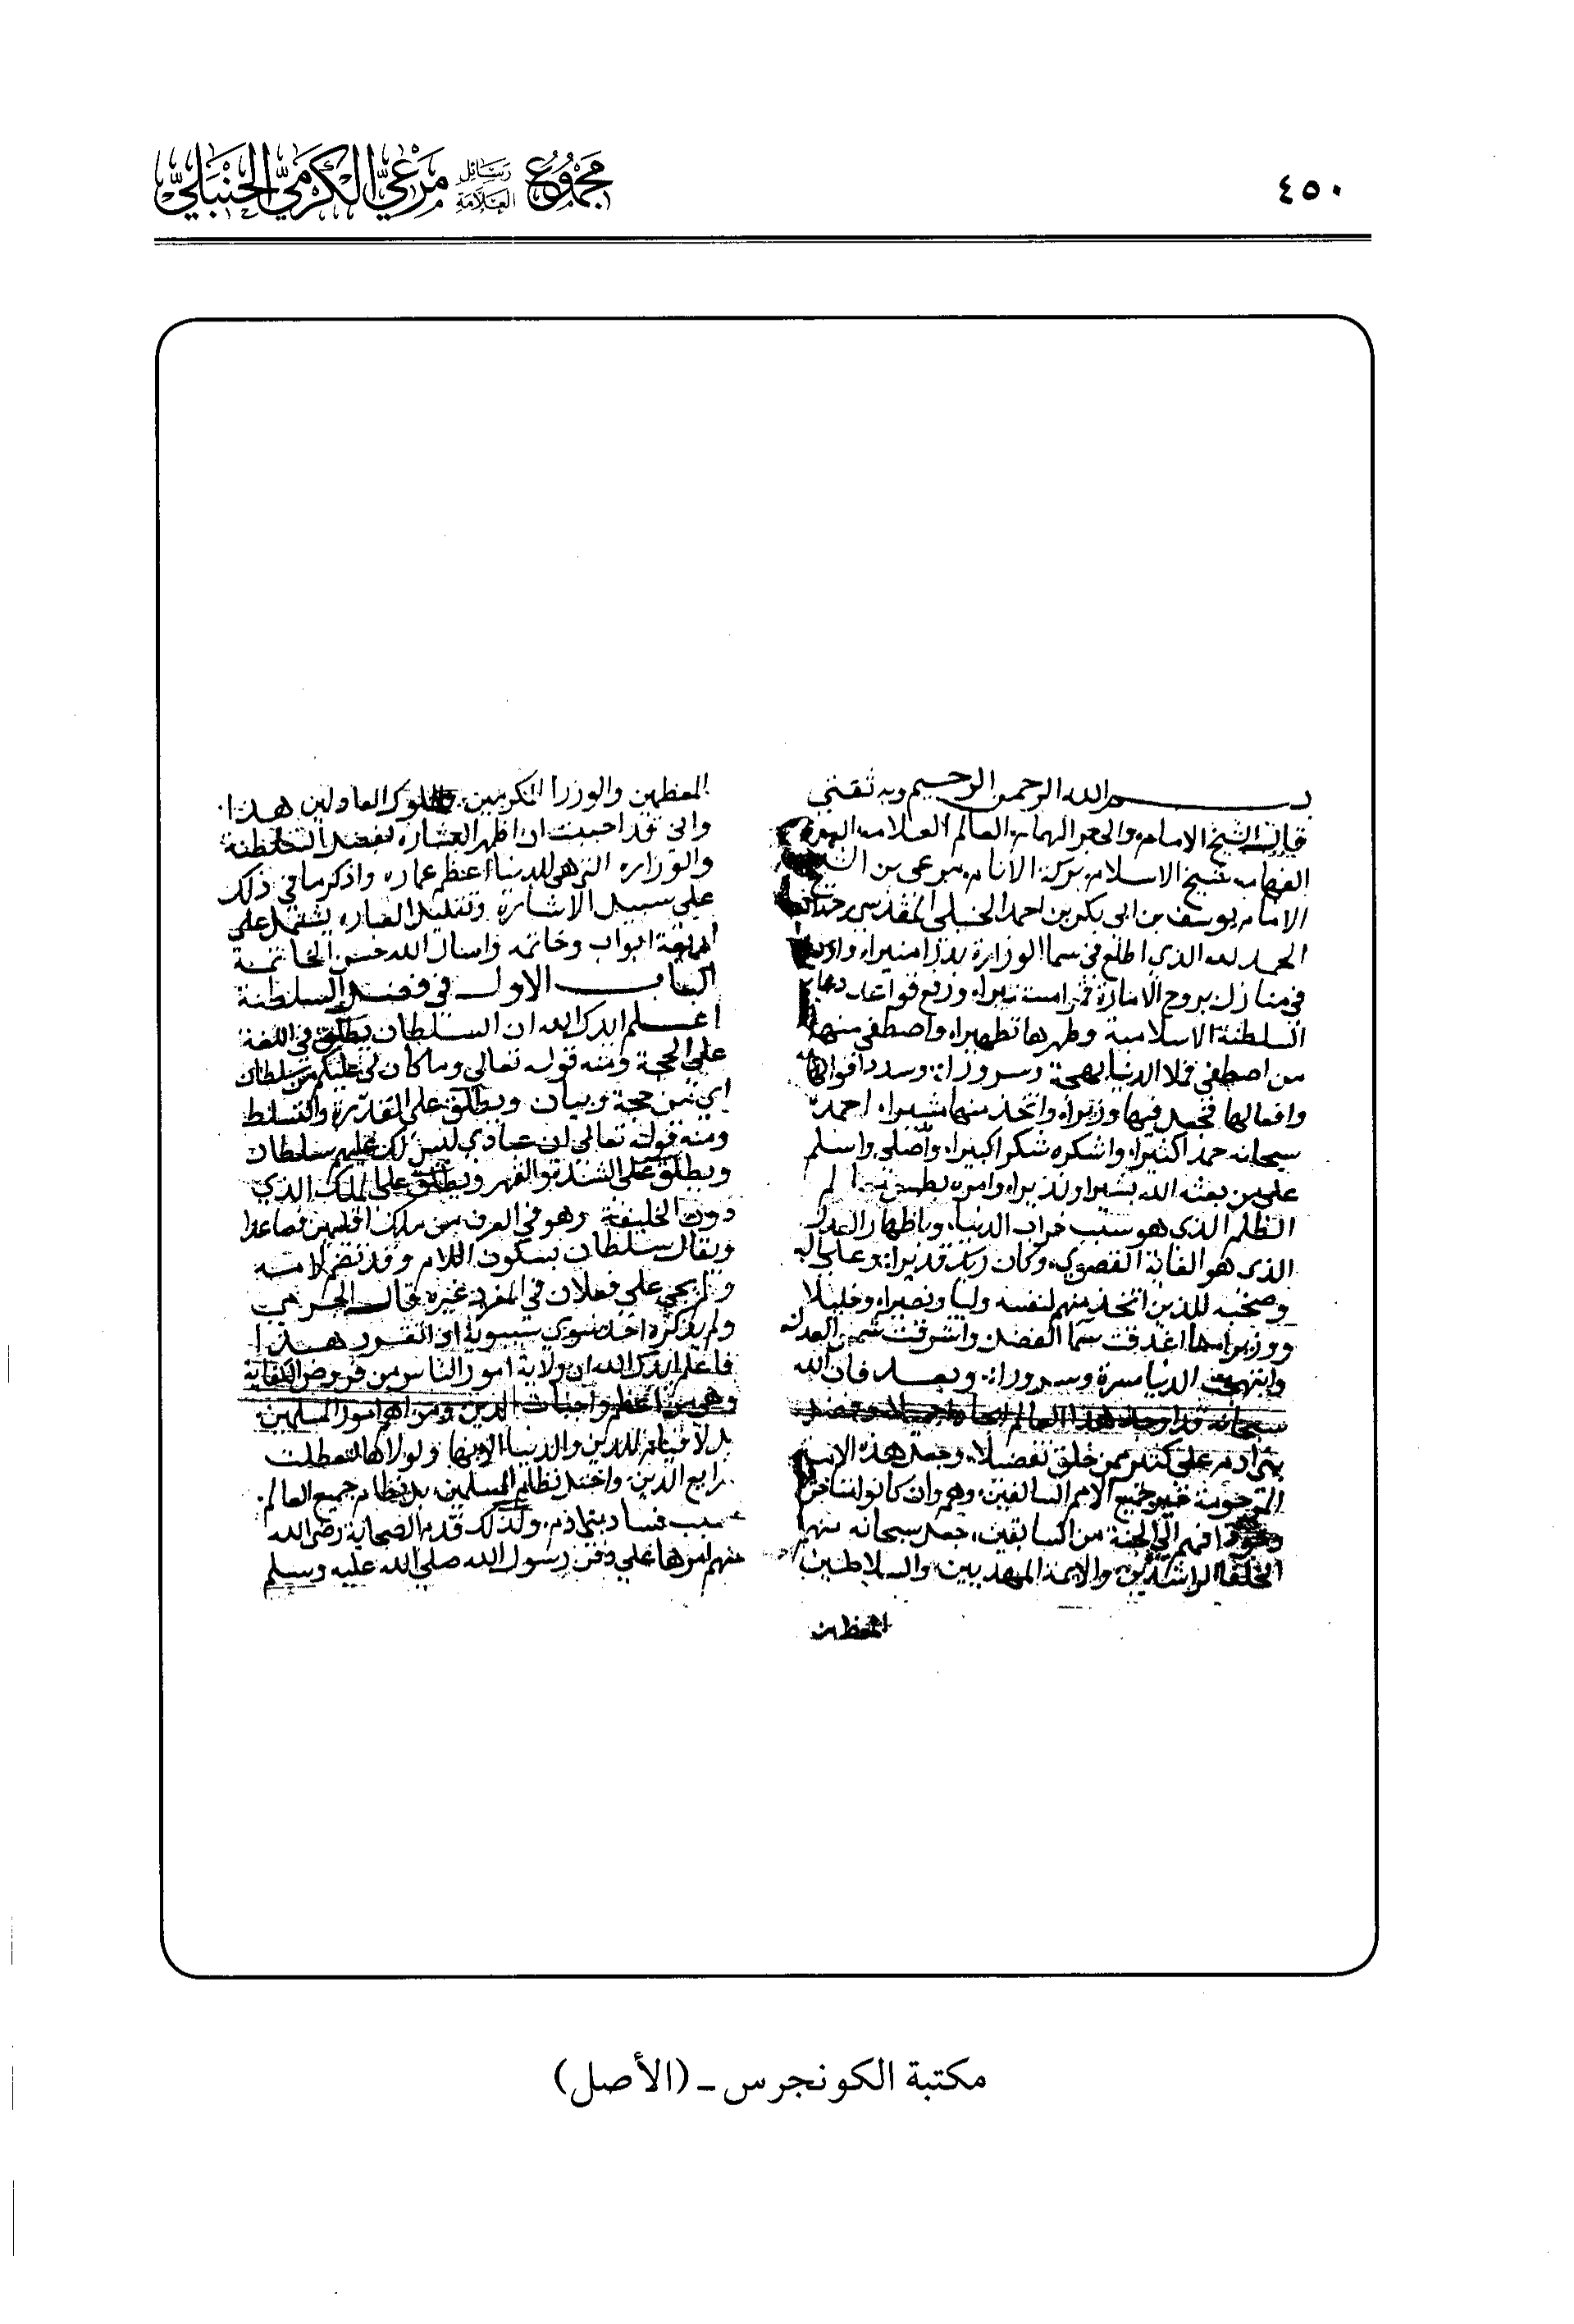 ٤٥٠
مجموع رسائل العلامة مرعي الكرمي الحنبلي
بسم الله الرحمن الرحيم وبه ثقتي
قال الشيخ الامام والحبر الهمام العالم العلامه
الفهامه شيخ الاسلام بركة الانام مرعي بن
الامام يوسف بن ابي بكر بن احمد الحنبلي المقدسي
الحمد لله الذي اطلع في سما الوزارة بدرا منيرا
في منازل بروج الامارة قمرا مستنيرا ورفع قواعد
السلطنة الاسلامية وطهرها تطهيرا واصطفي منها
من اصطفي فملا الدنيا بهجة وسرورا وسدد اقوالها
وافعالها فجعل فيها وزيرا واتخذ منها مشيرا احمده
سبحانه حمدا كثيرا واشكره شكرا كبيرا واصلي واسلم
علي من بعثه الله بشيرا ونذيرا وامره
الظلم الذي هو سبب خراب الدنيا وباظهار العدل
الذي هو الغاية القصوي وكان ربك قديرا وعلي اله
وصحبه الذين اتخذ منهم لنفسه وليا ونصيرا وخليلا
ووزيرا ما اغدقت سما الفضل واشرقت شمس العدل
وابتهجت الدنيا مسرة وسرورا وبعد فان الله
سبحانه قد اوجد هذا العالم ايجادا جميلا وفضل
بني ادم علي كثير ممن خلق تفضيلا وجعل هذه الامة
المرحومة خير جميع الامم السالفين وهم وان كانوا
فهم الي الجنة من السابقين جعل سبحانه منهم
الخلفا الراشدين والايمة المهديين والسلاطين
المعظمين
المعظمين والوزرا المكرمين والملوك العادلين هذا
واني قد احببت ان اظهر البشاره بفضل السلطنة
والوزاره التي هي للدنيا اعظم عماره واذكر ما في ذلك
علي سبيل الاشارة وتقليل العباره يشتمل علي
اربعة ابواب وخاتمه واسال الله حسن الخاتمة
الباب الاول في فضل السلطنة
اعلم ايدك الله ان السلطان يطلق في اللغة
علي الحجة ومنه قوله تعالي وما كان لي عليكم من سلطان
اي من حجة وبيان ويطلق علي القدرة والتسلط
ومنه قوله تعالي ان عبادي ليس لك عليهم سلطان
ويطلق علي الشدة والقهر ويطلق علي الملك الذي
دون الخليفة وهو في العرف من ملك اقليمين فصاعدا
ويقال سلطان بسكون اللام وقد تضم لامه
ولم يجي علي فعلان في المفرد غيره قال الجرمي
ولم يذكره احد سوي سيبويه اذا تقرر هذا
فاعلم ايدك الله ان ولاية امور الناس من فروض الكفاية
وهي من اعظم واجبات الدين ومن اهم امور المسلمين
بل لا قيام للدين والدنيا الا بها ولولاها لتعطلت
شرايع الدين واختل نظام المسلمين بل نظام جميع العالم
بسبب فساد بني ادم ولذلك قدم الصحابة رضي الله
عنهم امرها علي دفن رسول الله صلي الله عليه وسلم
مكتبة الكونجرس - (الأصل)